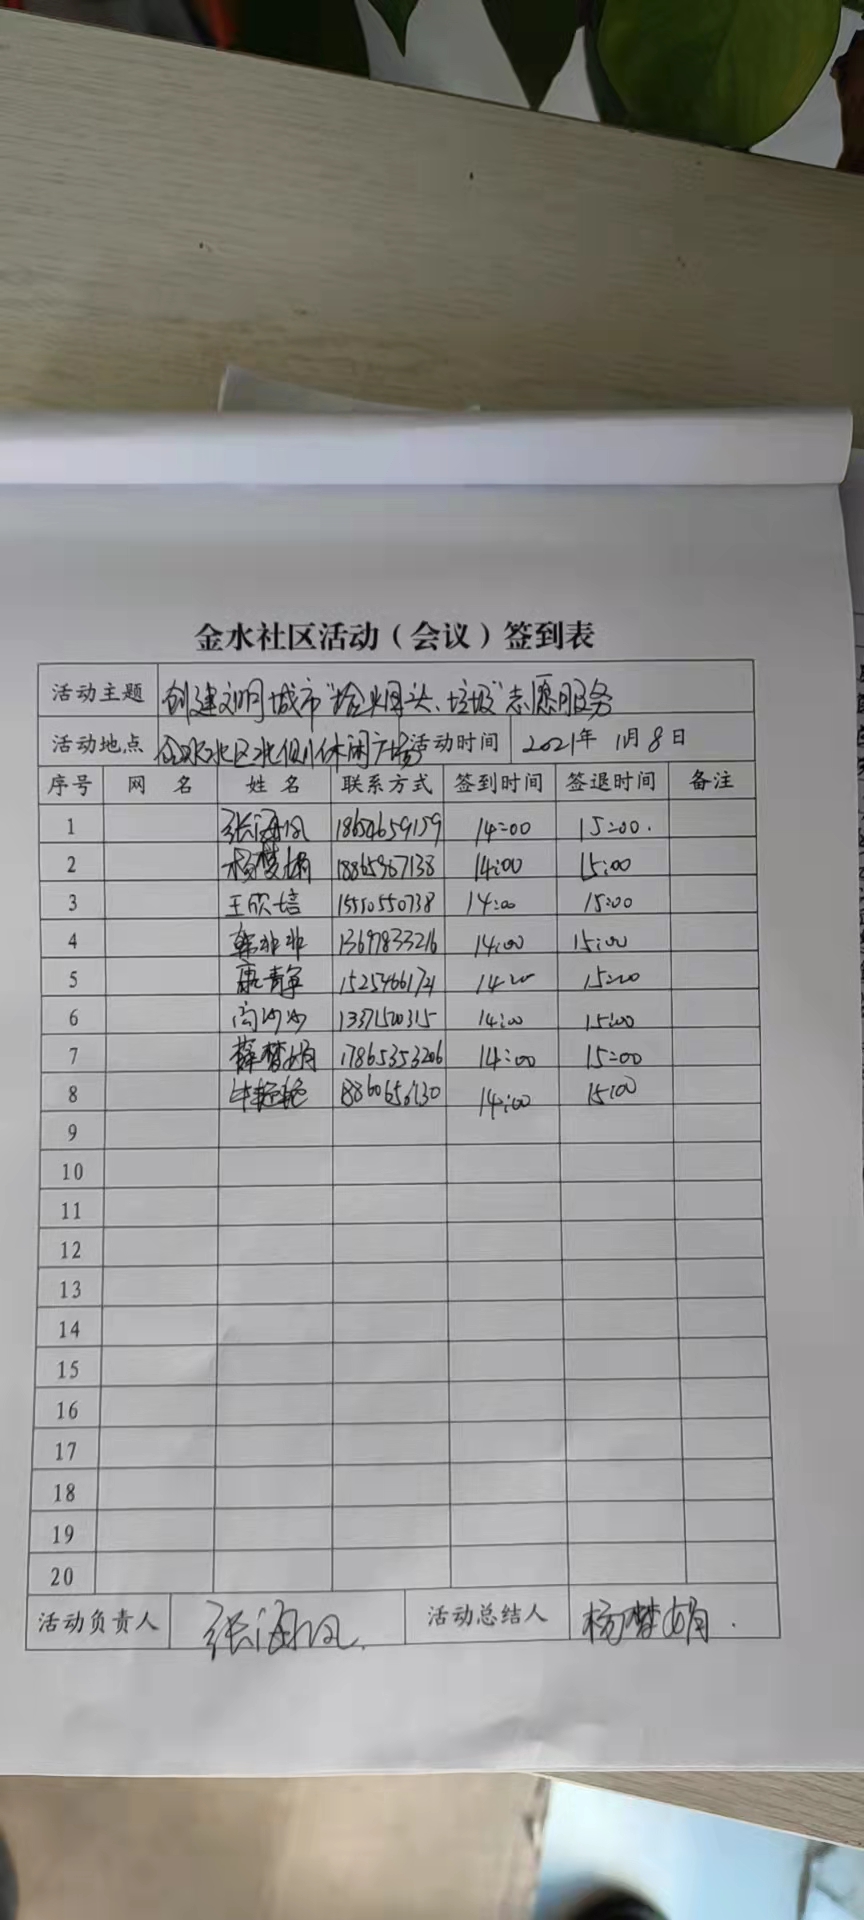 金水社区活动（会议）签到表
活动主题 创建文明城市"捡烟头、垃圾"志愿服务
活动地点 金水社区北侧休闲广场 活动时间 2021年 1月 8日
序号 网 名 姓 名 联系方式 签到时间 签退时间 备注
1 张海风 18654659159 14:00 15:00.
2 杨梦娟 18865967138 14:00 15:00
3 王欣培 15550550738 14:00 15:00
4 韩非非 13697833216 14:00 15:00
5 康静 14:00 15:00
6 高沙沙 13371500315 14:00 15:00
7 薛梦娟 17865353206 14:00 15:00
8 14:00 15:00
9
10
11
12
13
14
15
16
17
18
19
20
活动负责人 张海风. 活动总结人 杨梦娟.